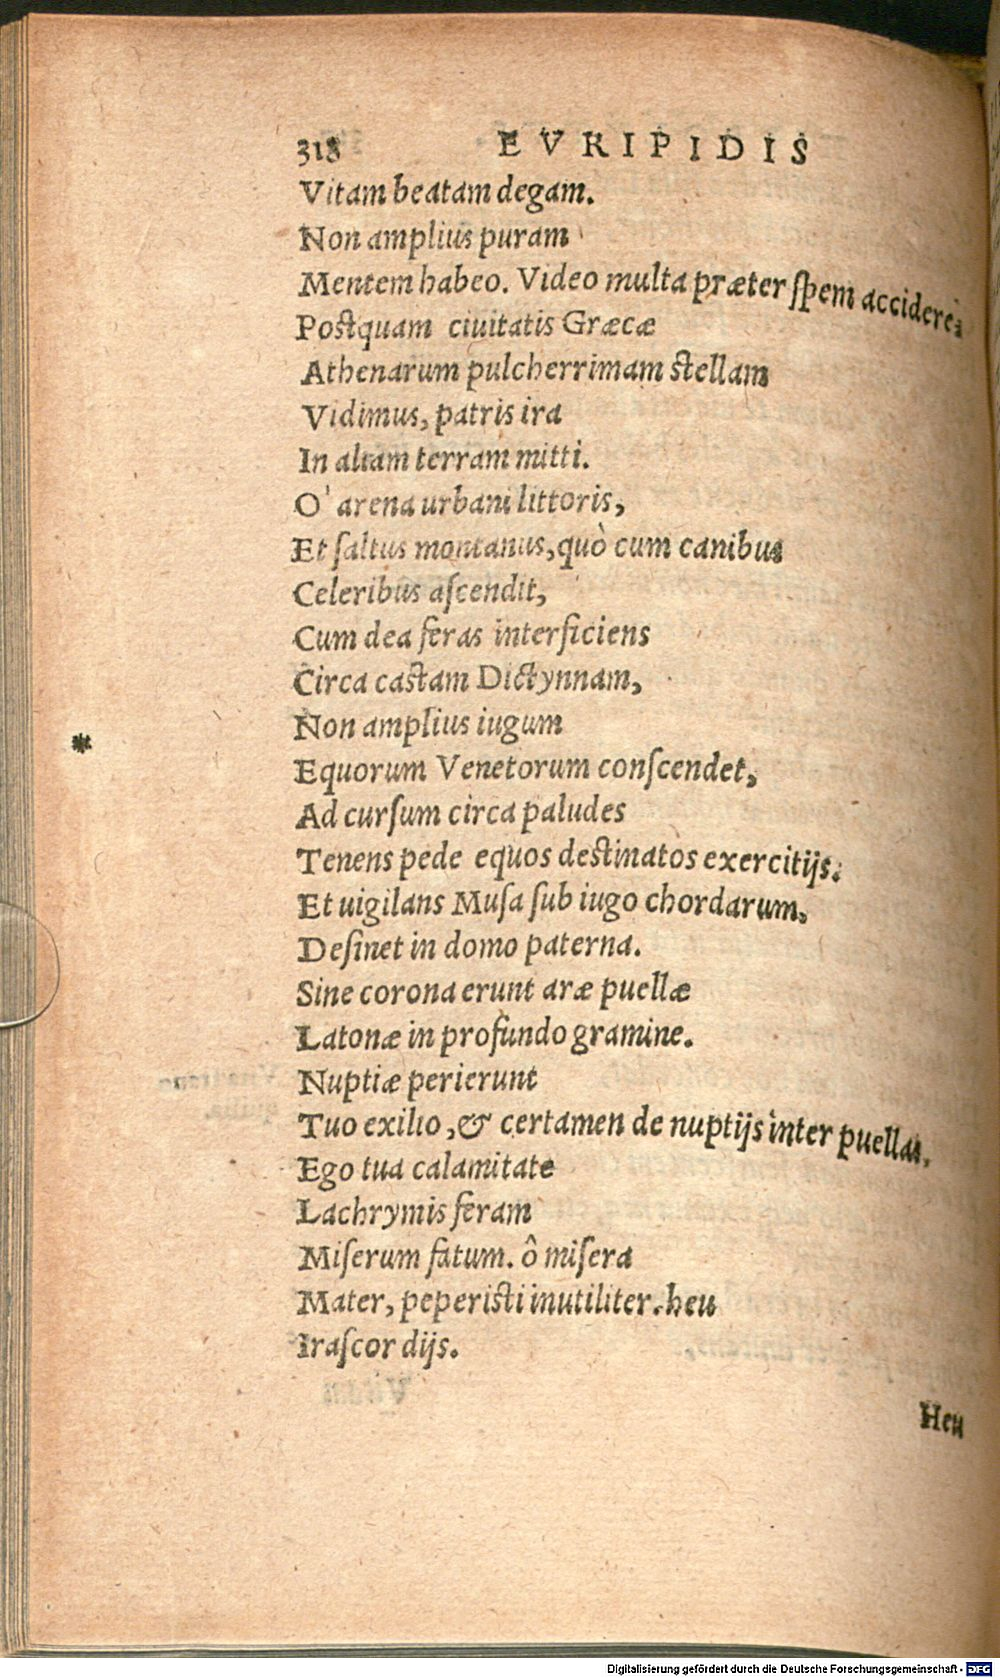 318 EVRIPIDIS
Vitam beatam degam.
Non amplius puram
Mentem habeo. Video multa præter ſpem accidere:
Poſtquam ciuitatis Græcæ
Athenarum pulcherrimam ſtellam
Vidimus, patris ira
In aliam terram mitti.
O' arena urbani littoris,
Et ſaltus montanus, quò cum canibus
Celeribus aſcendit,
Cum dea feras interficiens
Circa caſtam Dictynnam,
Non amplius iugum
*
Equorum Venetorum conſcendet,
Ad curſum circa paludes
Tenens pede equos deſtinatos exercitijs.
Et uigilans Muſa ſub iugo chordarum,
Deſinet in domo paterna.
Sine corona erunt aræ puellæ
Latonæ in profundo gramine.
Nuptiæ perierunt
Tuo exilio, & certamen de nuptijs inter puellas.
Ego tua calamitate
Lachrymis feram
Miſerum fatum. ô miſera
Mater, peperiſti inutiliter. heu
Iraſcor dijs.
Heu
Digitalisierung gefördert durch die Deutsche Forschungsgemeinschaft - DFG